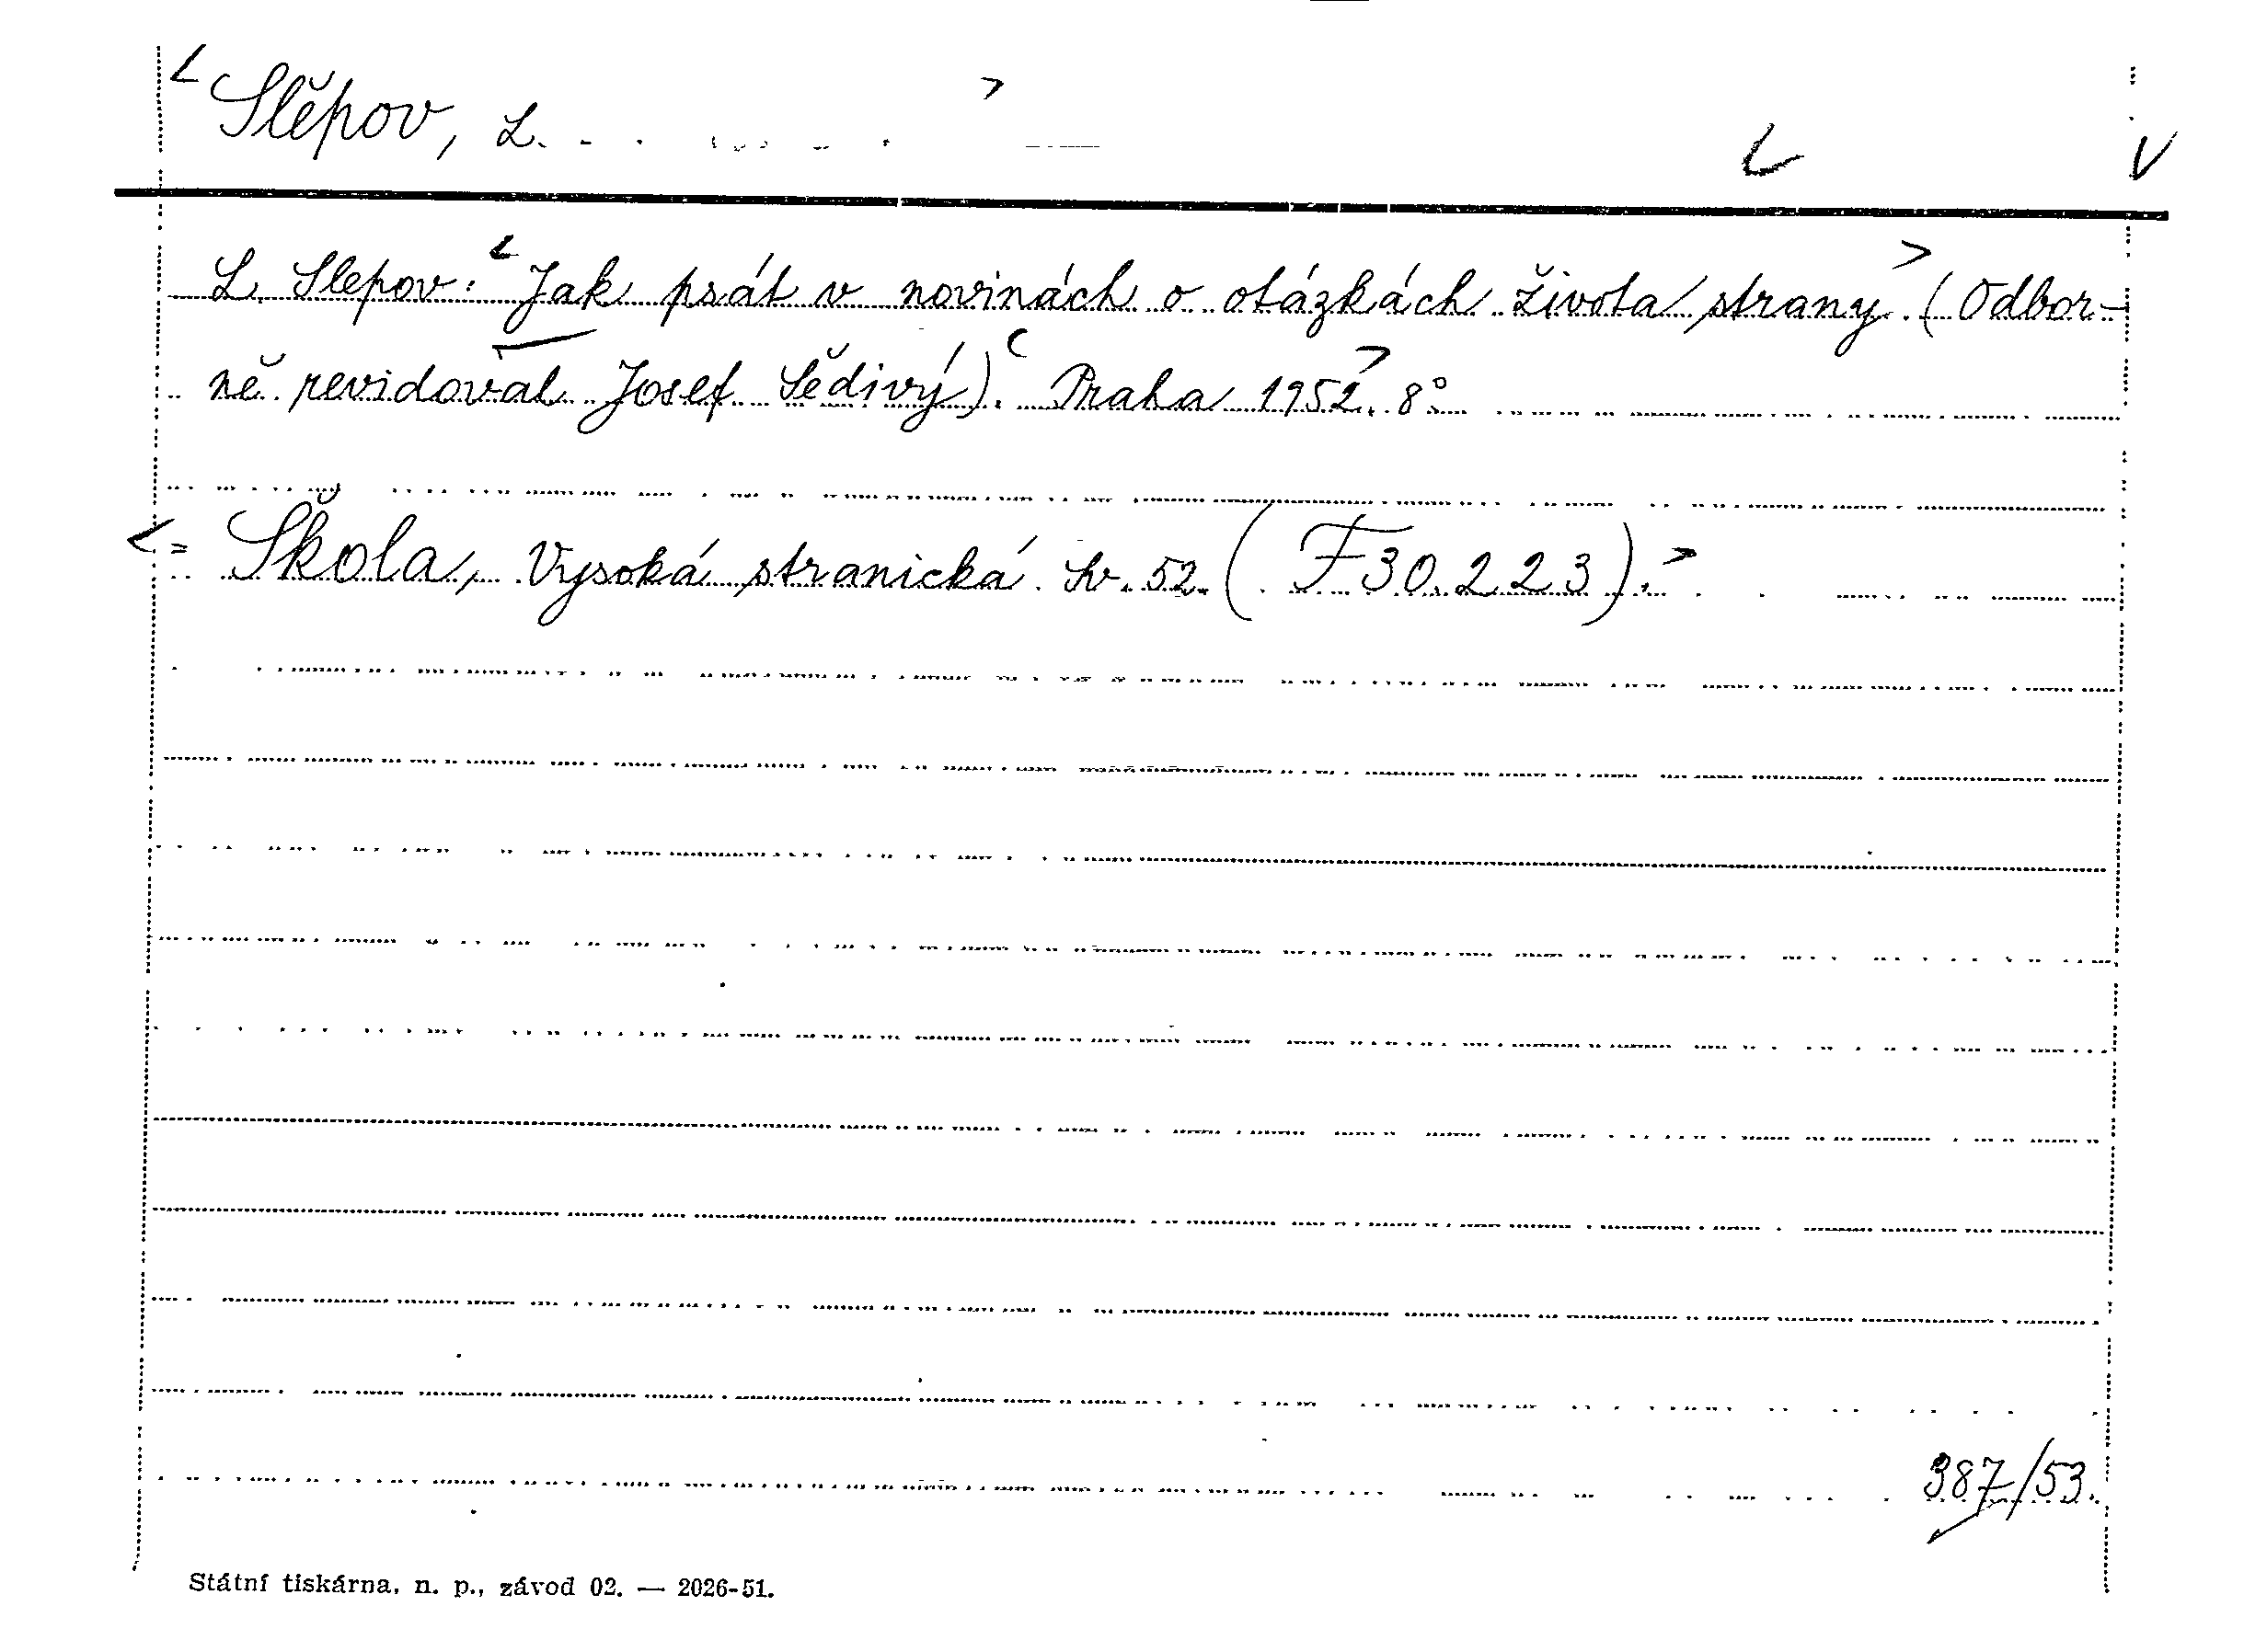 Slěpov, L.
L. Slepov: Jak psát v novinách o otázkách života strany. (Odbor-
ně revidoval Josef Šědivý). Praha 1952. 8°
= Škola, Vysoká stranická. Sv. 52. (F 30.223).
387/53.
Státní tiskárna, n. p., závod 02. — 2026-51.